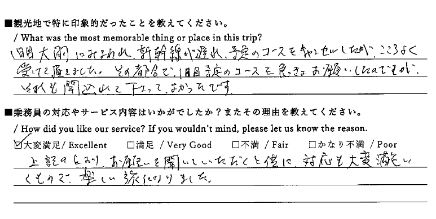 ■観光地で特に印象的だったことを教えてください。
/ What was the most memorable thing or place in this trip?
1日目大雨にみまわれ、新幹線が遅れ、予定のコースをキャンセルしたが、こころよく
受けて頂きました。その都合で、1日目予定のコースを急きょお願いしたのですが、
それも聞入れて下さって、よかったです。
■乗務員の対応やサービス内容はいかがでしたか?またその理由を教えてください。
/ How did you like our service? If you wouldn't mind, please let us know the reason.
☑大変満足/ Excellent □満足 / Very Good □不満 / Fair □かなり不満 / Poor
上記のとおり、お願いを聞いていただくと共に、対応も大変満足い
くもので、楽しい旅になりました。